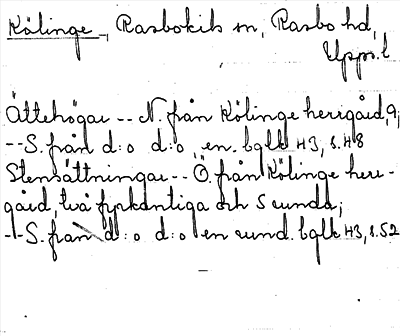 Kölinge, Rasbokils sn, Rasbo hd,
Upps. l
Ättehögar -- N. från Kölinge herrgård, 9,
-- S. från d:o d:o en. bglk H3, s. 48
Stensättningar -- Ö. från Kölinge herr-
gård, två fyrkantiga och 5 runda;
-- S. från d:o d:o en rund. bglk H3, s. 52